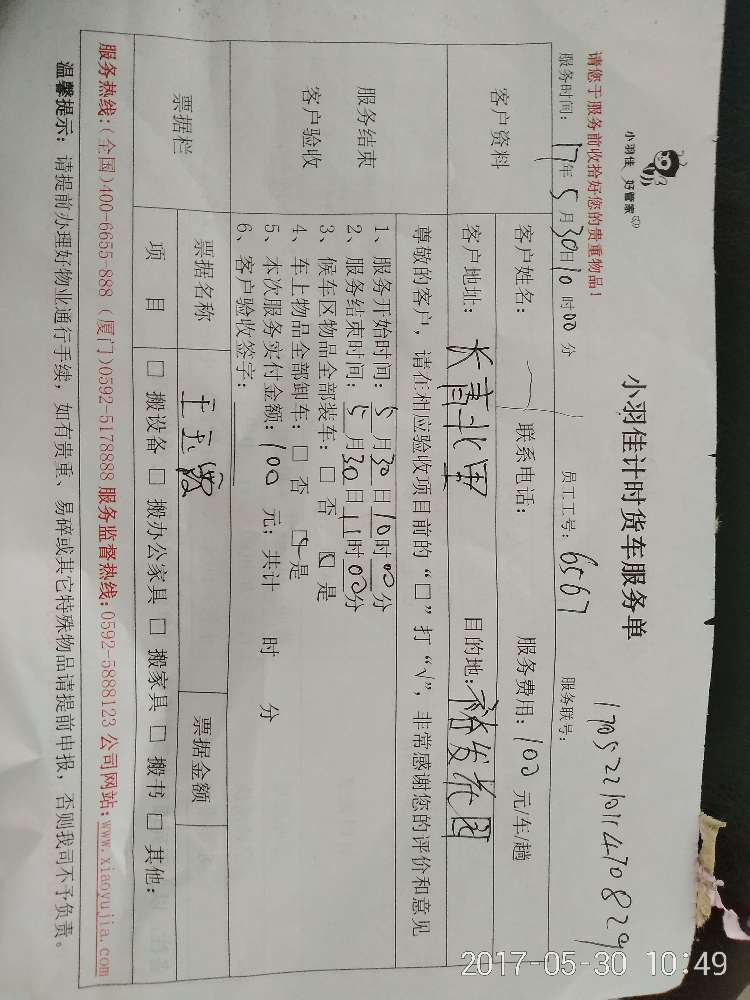 小羽佳 好管家
小羽佳计时货车服务单
1705221011470829
请您于服务前收拾好您的贵重物品!
服务时间: 17年5月30日10时00分 员工工号: 6567 服务联号:
客户资料
客户姓名: 联系电话: 服务费用: 100 元/车/趟
客户地址: 长青北里 目的地: 裕发花园
服务结束
客户验收
尊敬的客户, 请在相应验收项目前的“□”打“√”, 非常感谢您的评价和意见
1、服务开始时间: 5月30日10时00分
2、服务结束时间: 5月30日11时00分
3、候车区物品全部装车: □ 否 ☑ 是
4、车上物品全部卸车: □ 否 ☑ 是
5、本次服务实付金额: 100 元; 共计 时 分
6、客户验收签字:
票据栏
票据名称 票据金额
项 目 □ 搬设备 □ 搬办公家具 □ 搬家具 □ 搬书 □ 其他:
服务热线:(全国)400-6655-888 (厦门)0592-5178888 服务监督热线:0592-5888123 公司网站:www.xiaoyujia.com
温馨提示: 请提前办理好物业通行手续, 如有贵重、易碎或其它特殊物品请提前申报, 否则我司不予负责。
2017-05-30 10:49